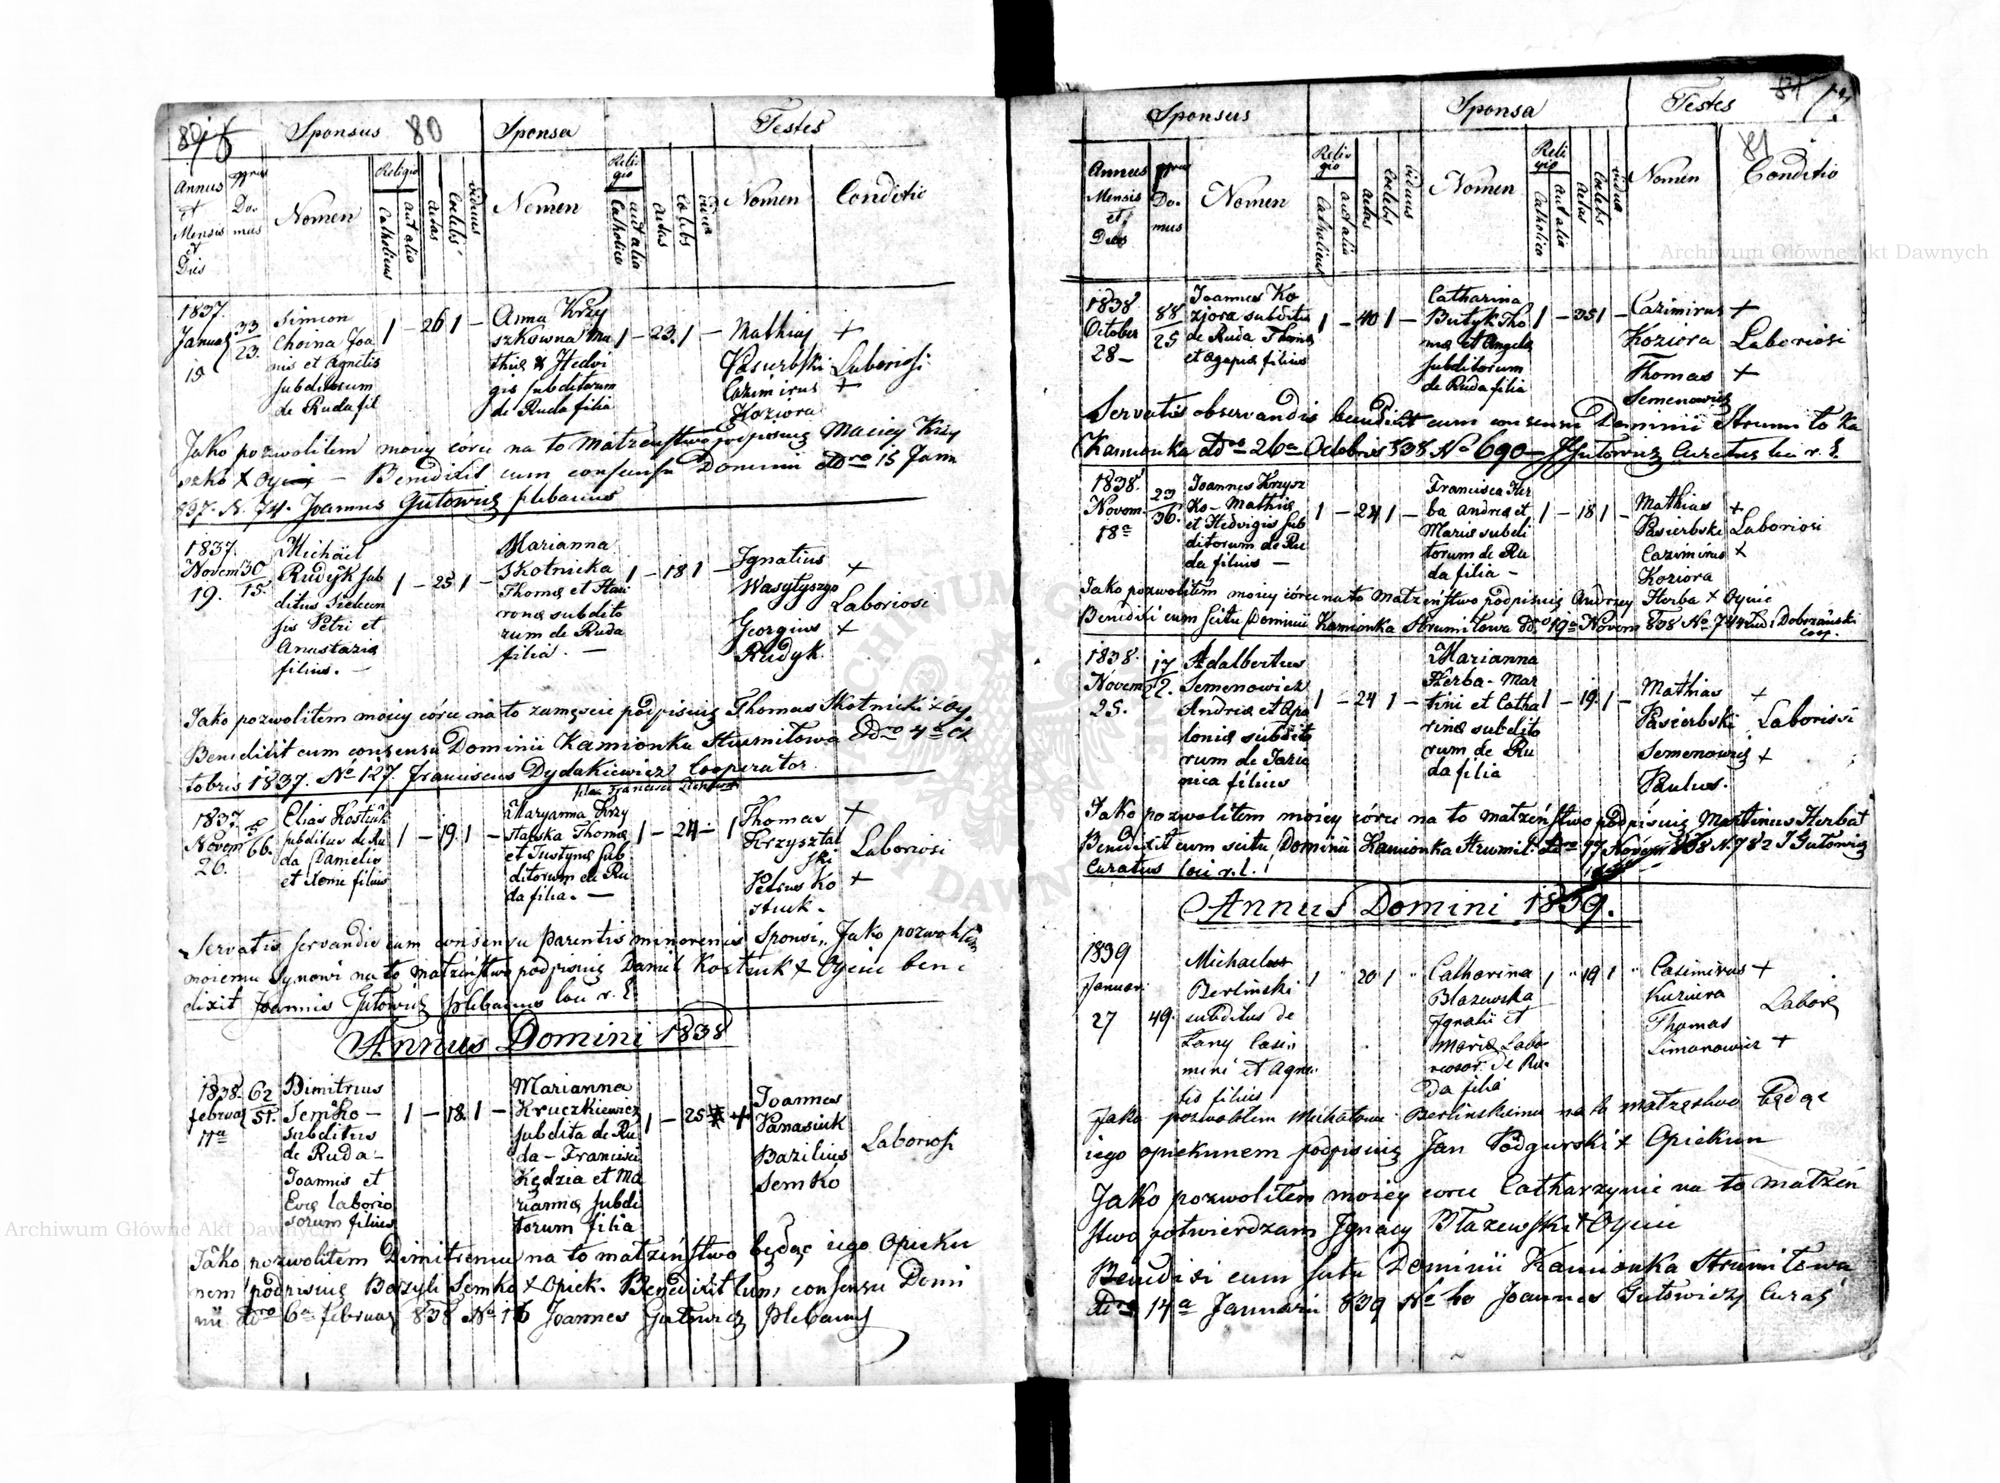 80
Sponsus
Sponsa
Testes
Annus et Mensis et Dies
Domus
Nomen
Religio
Catholicus
aut alia
aetas
Caelebs
viduus
Nomen
Religio
Catholica
aut alia
aetas
caelebs
vidua
Nomen
Conditio
1837.
Januar
19
33
23.
Simeon
Choina Joa
nis et Agnetis
subditorum
de Ruda fil
1 — 26 1 —
Anna Krzy
szkowna Ma
thiæ & Hedvi
gis subditorum
de Ruda filia
1 — 23. 1 —
Mathias +
Pasierbski Laboriosi
Cazimirus +
Koziora
Jako pozwoliłem moiey corce na to Małzenstwo podpisuię Maciey Krzy
szko + Oyciec — Benedixit cum consensu Dominii ddto 15 Janu
837. N. 74. Joannes Gutowicz plebanus
1837.
Novem
19.
30
15.
Michael
Rudyk sub
ditus
sis Petri et
Anastaziæ
filius. —
1 — 25 1 —
Marianna
Skotnicka
Thomæ et Hav
ronæ subdito
rum de Ruda
filia. —
1 — 18 1 —
Ignatius +
Wasylyszyn
Laboriosi
Georgius +
Rudyk
Jako pozwoliłem moiey córce na to zamęscie podpisuię Thomas Skotnicki + Oy
Benedixit cum consensu Dominii Kamionka Strumiłowa ddto 4ta Oc
tobris 1837. No 127. Franciscus Dydakiewicz Cooperator.
1837.
Novem
26.
5
66.
Elias Kostiuk
subditus de Ru
da Danielis
et Xeniæ filius
1 — 19 1 —
Maryanna Krzy
stalska Thomæ
et Justynæ sub
ditorum de Ru
da filia. —
1 — 24 — 1
Thomas +
Krzysztal
ski
Laboriosi
Petrus Ko +
stiuk —
Servatis servandis cum consensu parentis minorenis Sponsi, Jako pozwoliłem
moiemu Synowi na to małzenstwo podpisuię Daniel Kostiuk + Oyciec bene
dixit Joannes Gutowicz plebanus loci r. l.
Annus Domini 1838
1838.
februar
11a
62
51.
Dimitrius
Semko —
subditus
de Ruda —
Joannis et
Evæ laborio
sorum filius
1 — 18. 1 —
Marianna
Kruczkiewicz
subdita de Ru
da — Francisci
Kędzia et Ma
riannæ subdi
torum filia
1 — 25
Joannes
Panasiuk
Bazilius
Semko
Laboriosi
Jako pozwoliłem Dimitremu na to małzeństwo będąc iego Opieku
nem podpisuię Bazyli Semko + Opiek. Benedixit cum consensu Domi
nii ddto 6a februar 838 No 16 Joannes Gutowicz plebanus
81
Sponsus
Sponsa
Testes
Annus Mensis et Dies
Domus
Nomen
Religio
Catholicus
aut alia
aetas
Caelebs
viduus
Nomen
Religio
Catholica
aut alia
aetas
Caelebs
vidua
Nomen
Conditio
1838
October
28 —
88
25
Joannes Ko
ziora subditus
de Ruda Thomæ
et Agapæ filius
1 — 40 1 —
Catharina
Butyk Tho
mæ et Angelæ
subditorum
de Ruda filia
1 — 35 1 —
Cazimirus +
Koziora Laboriosi
Thomas +
Semenowicz
Servatis observandis benedixit cum consensu Dominii Strumiło Ka
Kamionka ddto 26a Octobris 838 No 690 — J Gutowicz Curatus loci r. l.
1838.
Novem.
18a
23
36.
Joannes Krzysz
ko — Mathiæ
et Hedvigis sub
ditorum de Ru
da filius —
1 — 24 1 —
Francisca Her
ba Andreæ et
Mariæ subdi
torum de Ru
da filia —
1 — 18 1 —
Mathias +
Pasierbski Laboriosi
Cazimirus +
Koziora
Jako pozwoliłem moiey córce na to Małzeństwo podpisuię Andrzey Herba + Oyciec
Benedixi cum scitu Dominii Kamionka Strumiłowa ddto 19a Novem 838 No 744 Dobrzański
coop.
1838.
Novem
25.
17
22.
Adalbertus
Semenowicz
Andreæ et Apo
loniæ subdito
rum de Jazie
nica filius
1 — 24 1 —
Marianna
Herba — Mar
tini et Catha
rinæ subdito
rum de Ru
da filia
1 — 19. 1 —
Mathias +
Pasierbski Laboriosi
Semenowicz +
Paulus.
Jako pozwoliłem moiey córce na to małzeństwo podpisuię Martinus Herba +
Benedixit cum scitu Dominii Kamionka Strumił. ddto 17 Novem 838 N. 782 J Gutowicz
Curatus loci r. l.
Annus Domini 1839.
1839
Januar.
27
49.
Michael
Berlinski
subditus de
Łany Casi
miri et Agne
tis filius
1 " 20 1 "
Catharina
Blazewska
Ignatii et
Mariæ Labo
riosor. de Ru
da filia
1 " 19 1 "
Casimirus +
Kuziera
Labor
Thomas
Simonowicz +
Jako pozwoliłem Michałowi Berlinskiemu na to małzęstwo będąc
iego opiekunem podpisuię Jan Podgurski + Opiekun
Jako pozwoliłem moiey corce Catharzynie na to małzeń
stwo potwierdzam Ignacy Błazewski + Oyciec
Benedixi cum scitu Dominii Kamionka Strumiłowa
ddto 14a Januarii 839 No 40 Joannes Gutowicz Curat
Archiwum Główne Akt Dawnych
Archiwum Główne Akt Dawnych